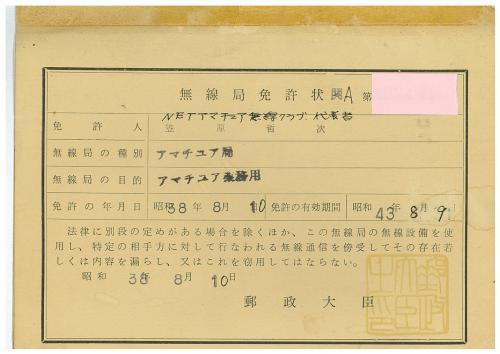 無線局免許状 関A 第
NETアマチュア無線クラブ 代表者
免許人 笠原 次
無線局の種別 アマチュア局
無線局の目的 アマチュア業務用
免許の年月日 昭和38年8月10日 免許の有効期間 昭和43年8月9日
法律に別段の定めがある場合を除くほか、この無線局の無線設備を使
用し、特定の相手方に対して行なわれる無線通信を傍受してその存在若
しくは内容を漏らし、又はこれを窃用してはならない。
昭和38年8月10日
郵政大臣